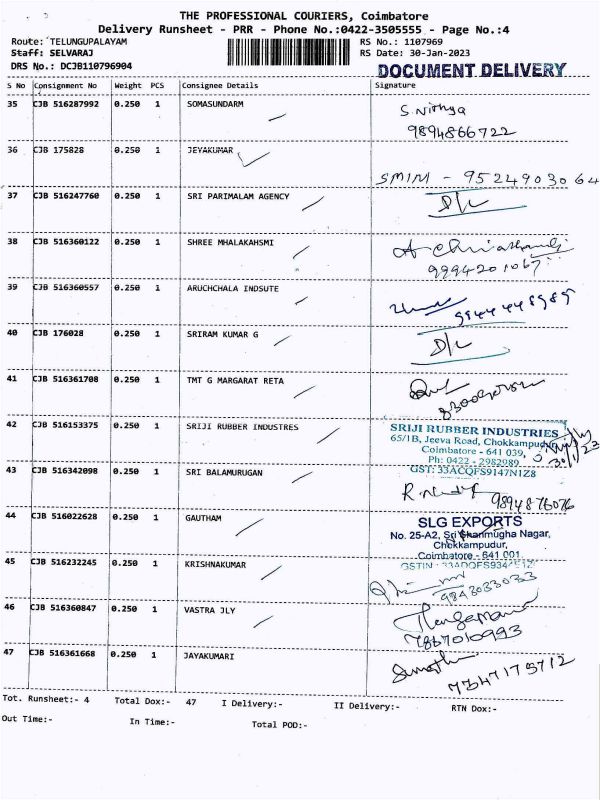 THE PROFESSIONAL COURIERS, Coimbatore
Delivery Runsheet - PRR - Phone No.:0422-3505555 - Page No.:4
Route: TELUNGUPALAYAM RS No.: 1107969
Staff: SELVARAJ RS Date: 30-Jan-2023
DRS No.: DCJB110796904 DOCUMENT DELIVERY
S No Consignment No Weight PCS Consignee Details Signature
35 CJB 516287992 0.250 1 SOMASUNDARM S Nithya
9894866722
36 CJB 175828 0.250 1 JEYAKUMAR
SMIM - 9524903064
37 CJB 516247760 0.250 1 SRI PARIMALAM AGENCY D/L
38 CJB 516360122 0.250 1 SHREE MHALAKAHSMI
9994201067
39 CJB 516360557 0.250 1 ARUCHCHALA INDSUTE
9944448989
40 CJB 176028 0.250 1 SRIRAM KUMAR G D/L
41 CJB 516361708 0.250 1 TMT G MARGARAT RETA
42 CJB 516153375 0.250 1 SRIJI RUBBER INDUSTRES SRIJI RUBBER INDUSTRIES
65/1B, Jeeva Road, Chokkampudur
Coimbatore - 641 039,
30/1/23
Ph: 0422 - 2982989
GST: 33ACQFS9147N1Z8
43 CJB 516342098 0.250 1 SRI BALAMURUGAN
9894876076
44 CJB 516022628 0.250 1 GAUTHAM SLG EXPORTS
No. 25-A2, Sri Shanmugha Nagar,
Chokkampudur,
Coimbatore - 641 001
45 CJB 516232245 0.250 1 KRISHNAKUMAR
9843033033
46 CJB 516360847 0.250 1 VASTRA JLY
7867010993
47 CJB 516361668 0.250 1 JAYAKUMARI
7347175712
Tot. Runsheet:- 4 Total Dox:- 47 I Delivery:- II Delivery:- RTN Dox:-
Out Time:- In Time:- Total POD:-